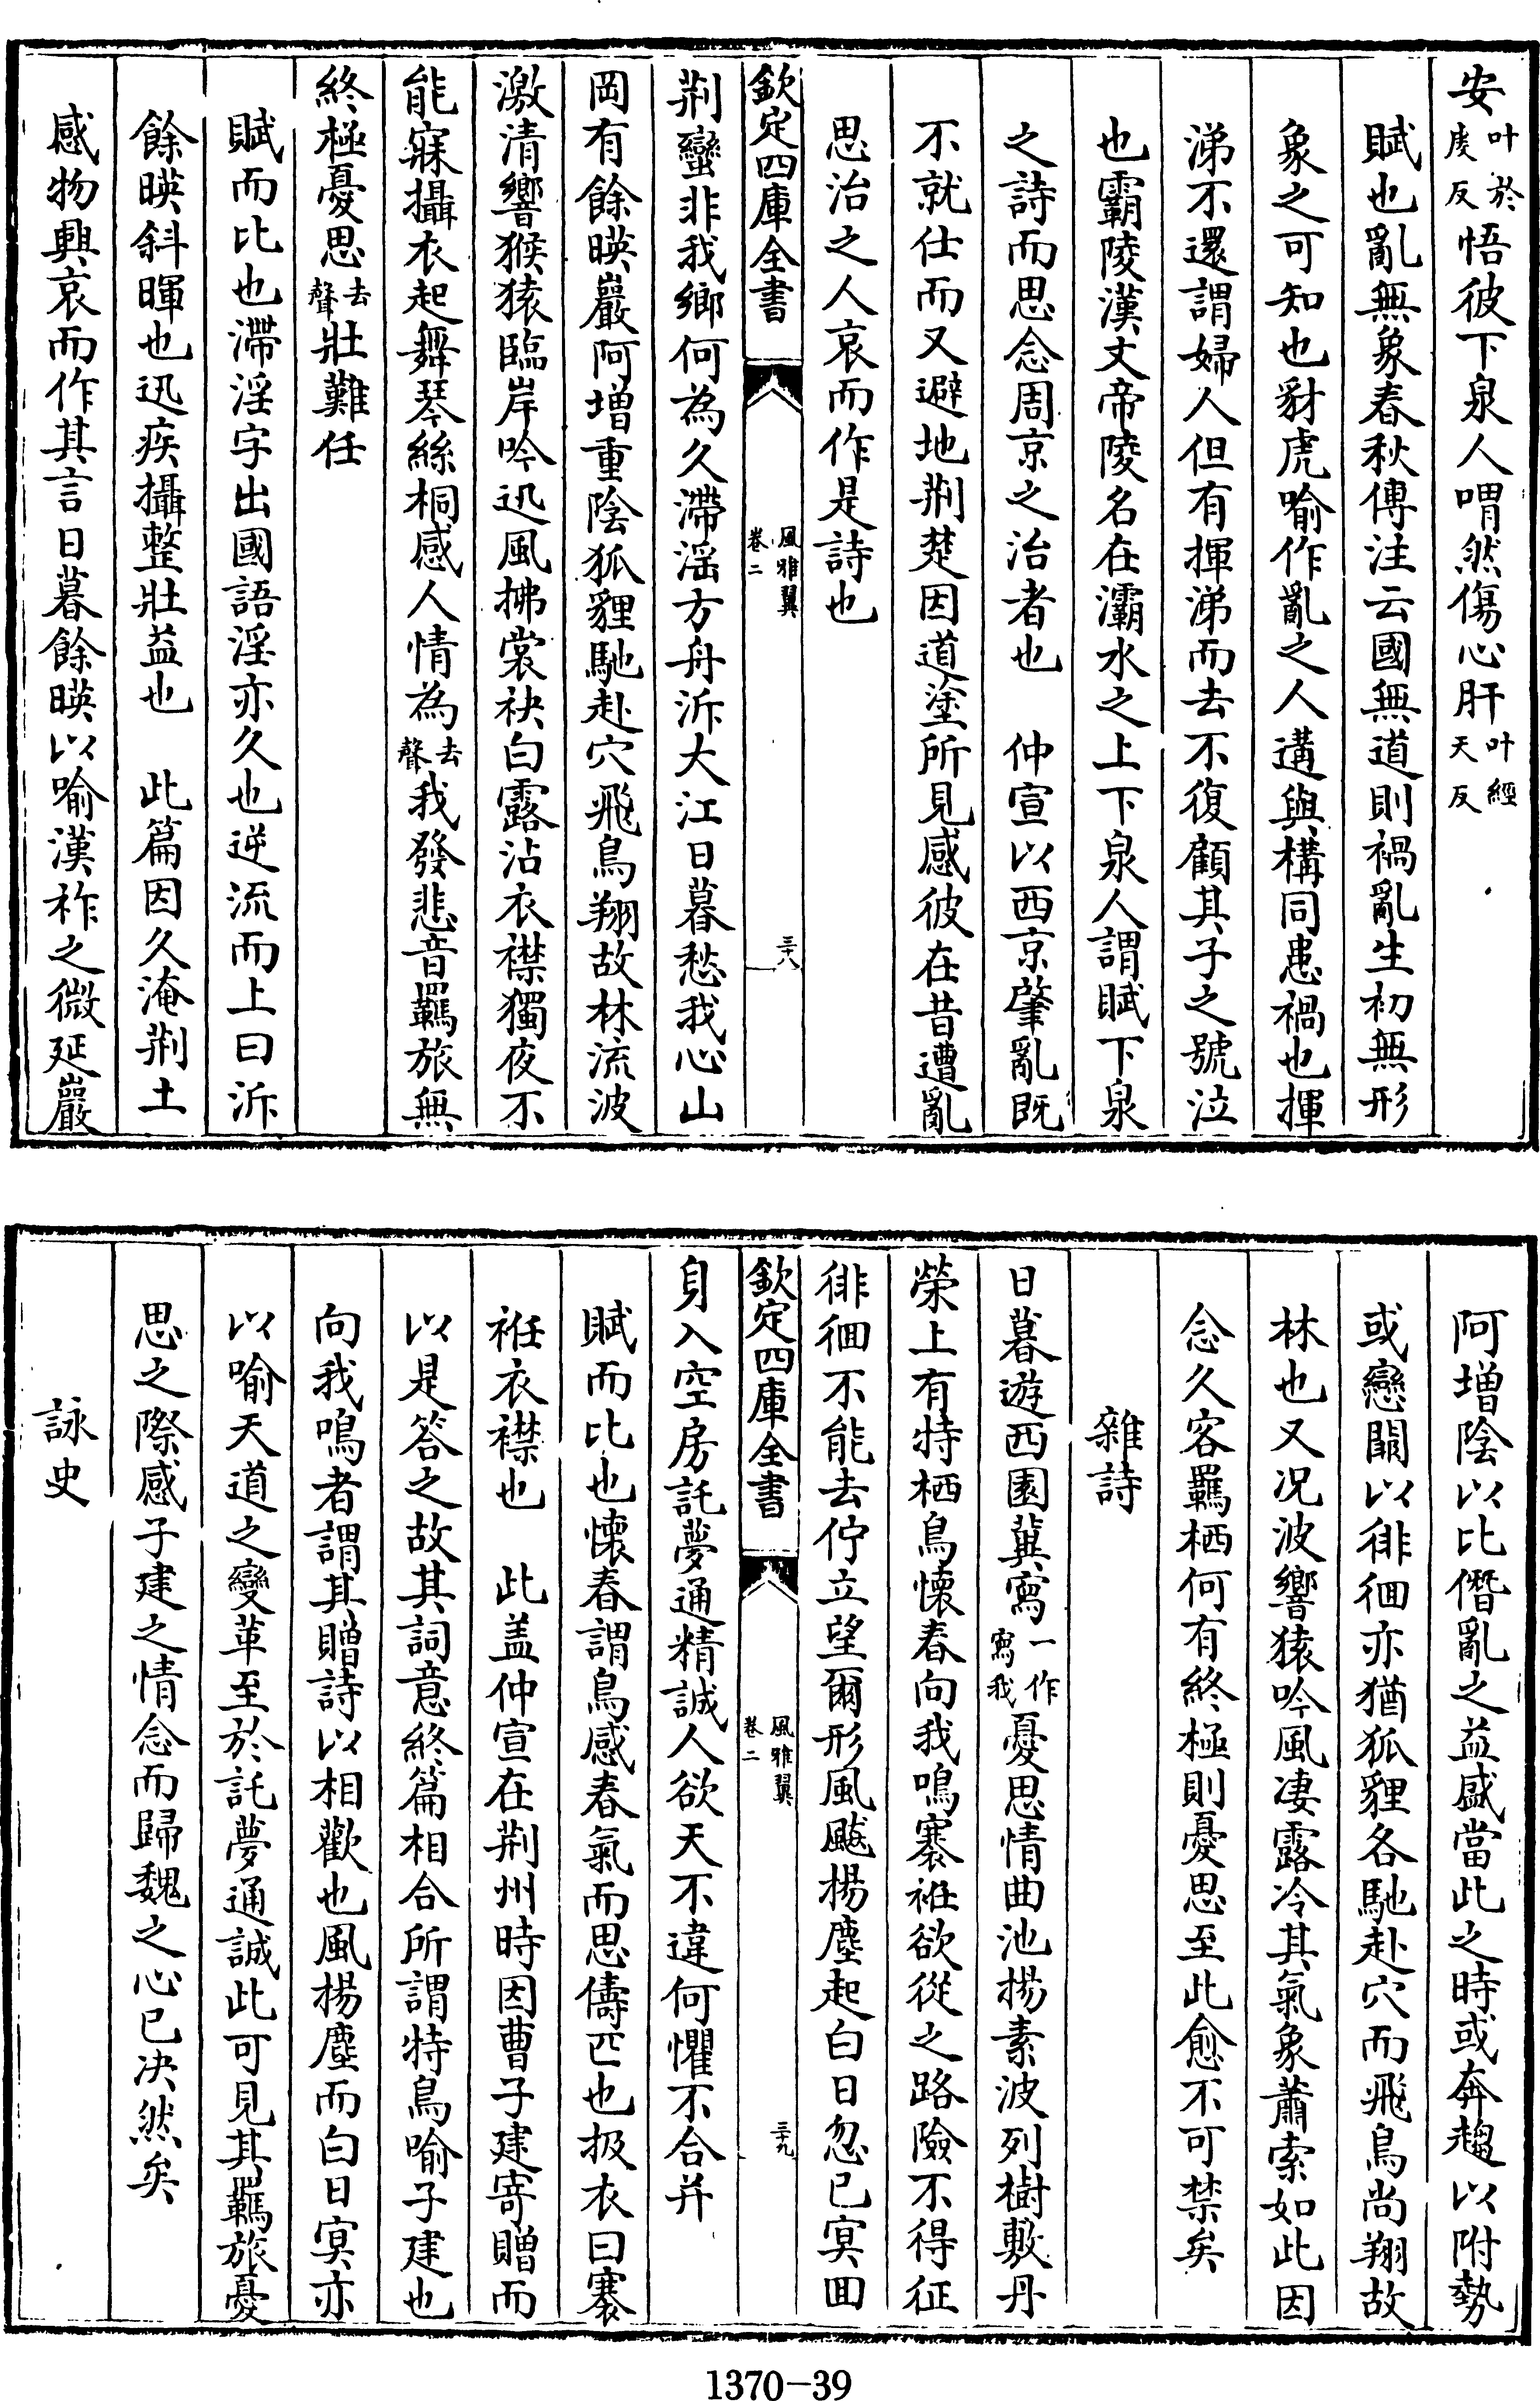 安叶於虔反悟彼下泉人喟然傷心肝叶經天反
賦也亂無象春秋傳注云國無道則禍亂生初無形
象之可知也豺虎喻作亂之人遘與構同患禍也揮
涕不還謂婦人但有揮涕而去不復顧其子之號泣
也霸陵漢文帝陵名在灞水之上下泉人謂賦下泉
之詩而思念周京之治者也　仲宣以西京肇亂既
不就仕而又避地荆楚因道塗所見感彼在昔遭亂
思治之人哀而作是詩也
欽定四庫全書　風雅翼　卷二　三十八
荆蠻非我鄉何為久滯滛方舟泝大江日暮愁我心山
岡有餘暎巖阿增重陰狐貍馳赴穴飛鳥翔故林流波
激清響猴猿臨岸吟迅風拂裳袂白露沾衣襟獨夜不
能寐攝衣起舞琴絲桐感人情為去聲我發悲音羈旅無
終極憂思去聲壯難任
賦而比也滯淫字出國語淫亦久也逆流而上曰泝
餘暎斜暉也迅疾攝整壯益也　此篇因久淹荆土
感物興哀而作其言日暮餘暎以喻漢祚之微延巖
阿增陰以比僭亂之益盛當此之時或奔趨以附勢
或戀闕以徘徊亦猶狐貍各馳赴穴而飛鳥尚翔故
林也又况波響猿吟風凄露冷其氣象蕭索如此因
念久客羈栖何有終極則憂思至此愈不可禁矣
雜詩
日暮遊西園冀寫一作寫我憂思情曲池揚素波列樹敷丹
榮上有特栖鳥懷春向我鳴褰袵欲從之路險不得征
徘徊不能去佇立望爾形風飈揚塵起白日忽已冥回
欽定四庫全書　風雅翼　卷二　三十九
身入空房託夢通精誠人欲天不違何懼不合并
賦而比也懷春謂鳥感春氣而思儔匹也扱衣曰褰
袵衣襟也　此盖仲宣在荆州時因曹子建寄贈而
以是答之故其詞意終篇相合所謂特鳥喻子建也
向我鳴者謂其贈詩以相歡也風揚塵而白日冥亦
以喻天道之變革至於託夢通誠此可見其羈旅憂
思之際感子建之情念而歸魏之心已决然矣
詠史
1370-39